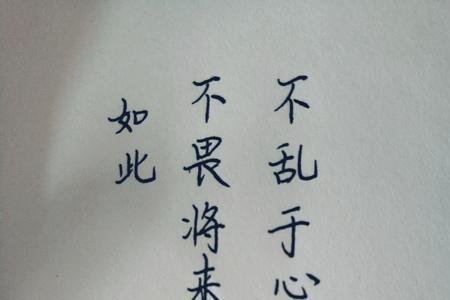 不乱于心
不畏将来
如此